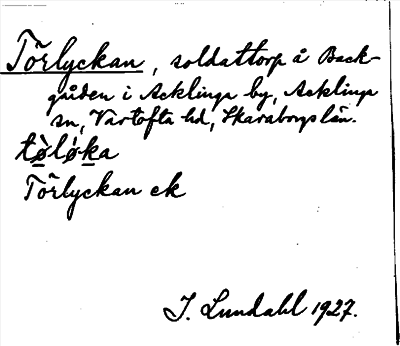 Törlyckan, soldattorp å Back-
gården i Acklinga by, Acklinga
sn, Vartofta hd, Skaraborgs län.
tø̀lǿka
Törlyckan ek
I. Lundahl 1927.